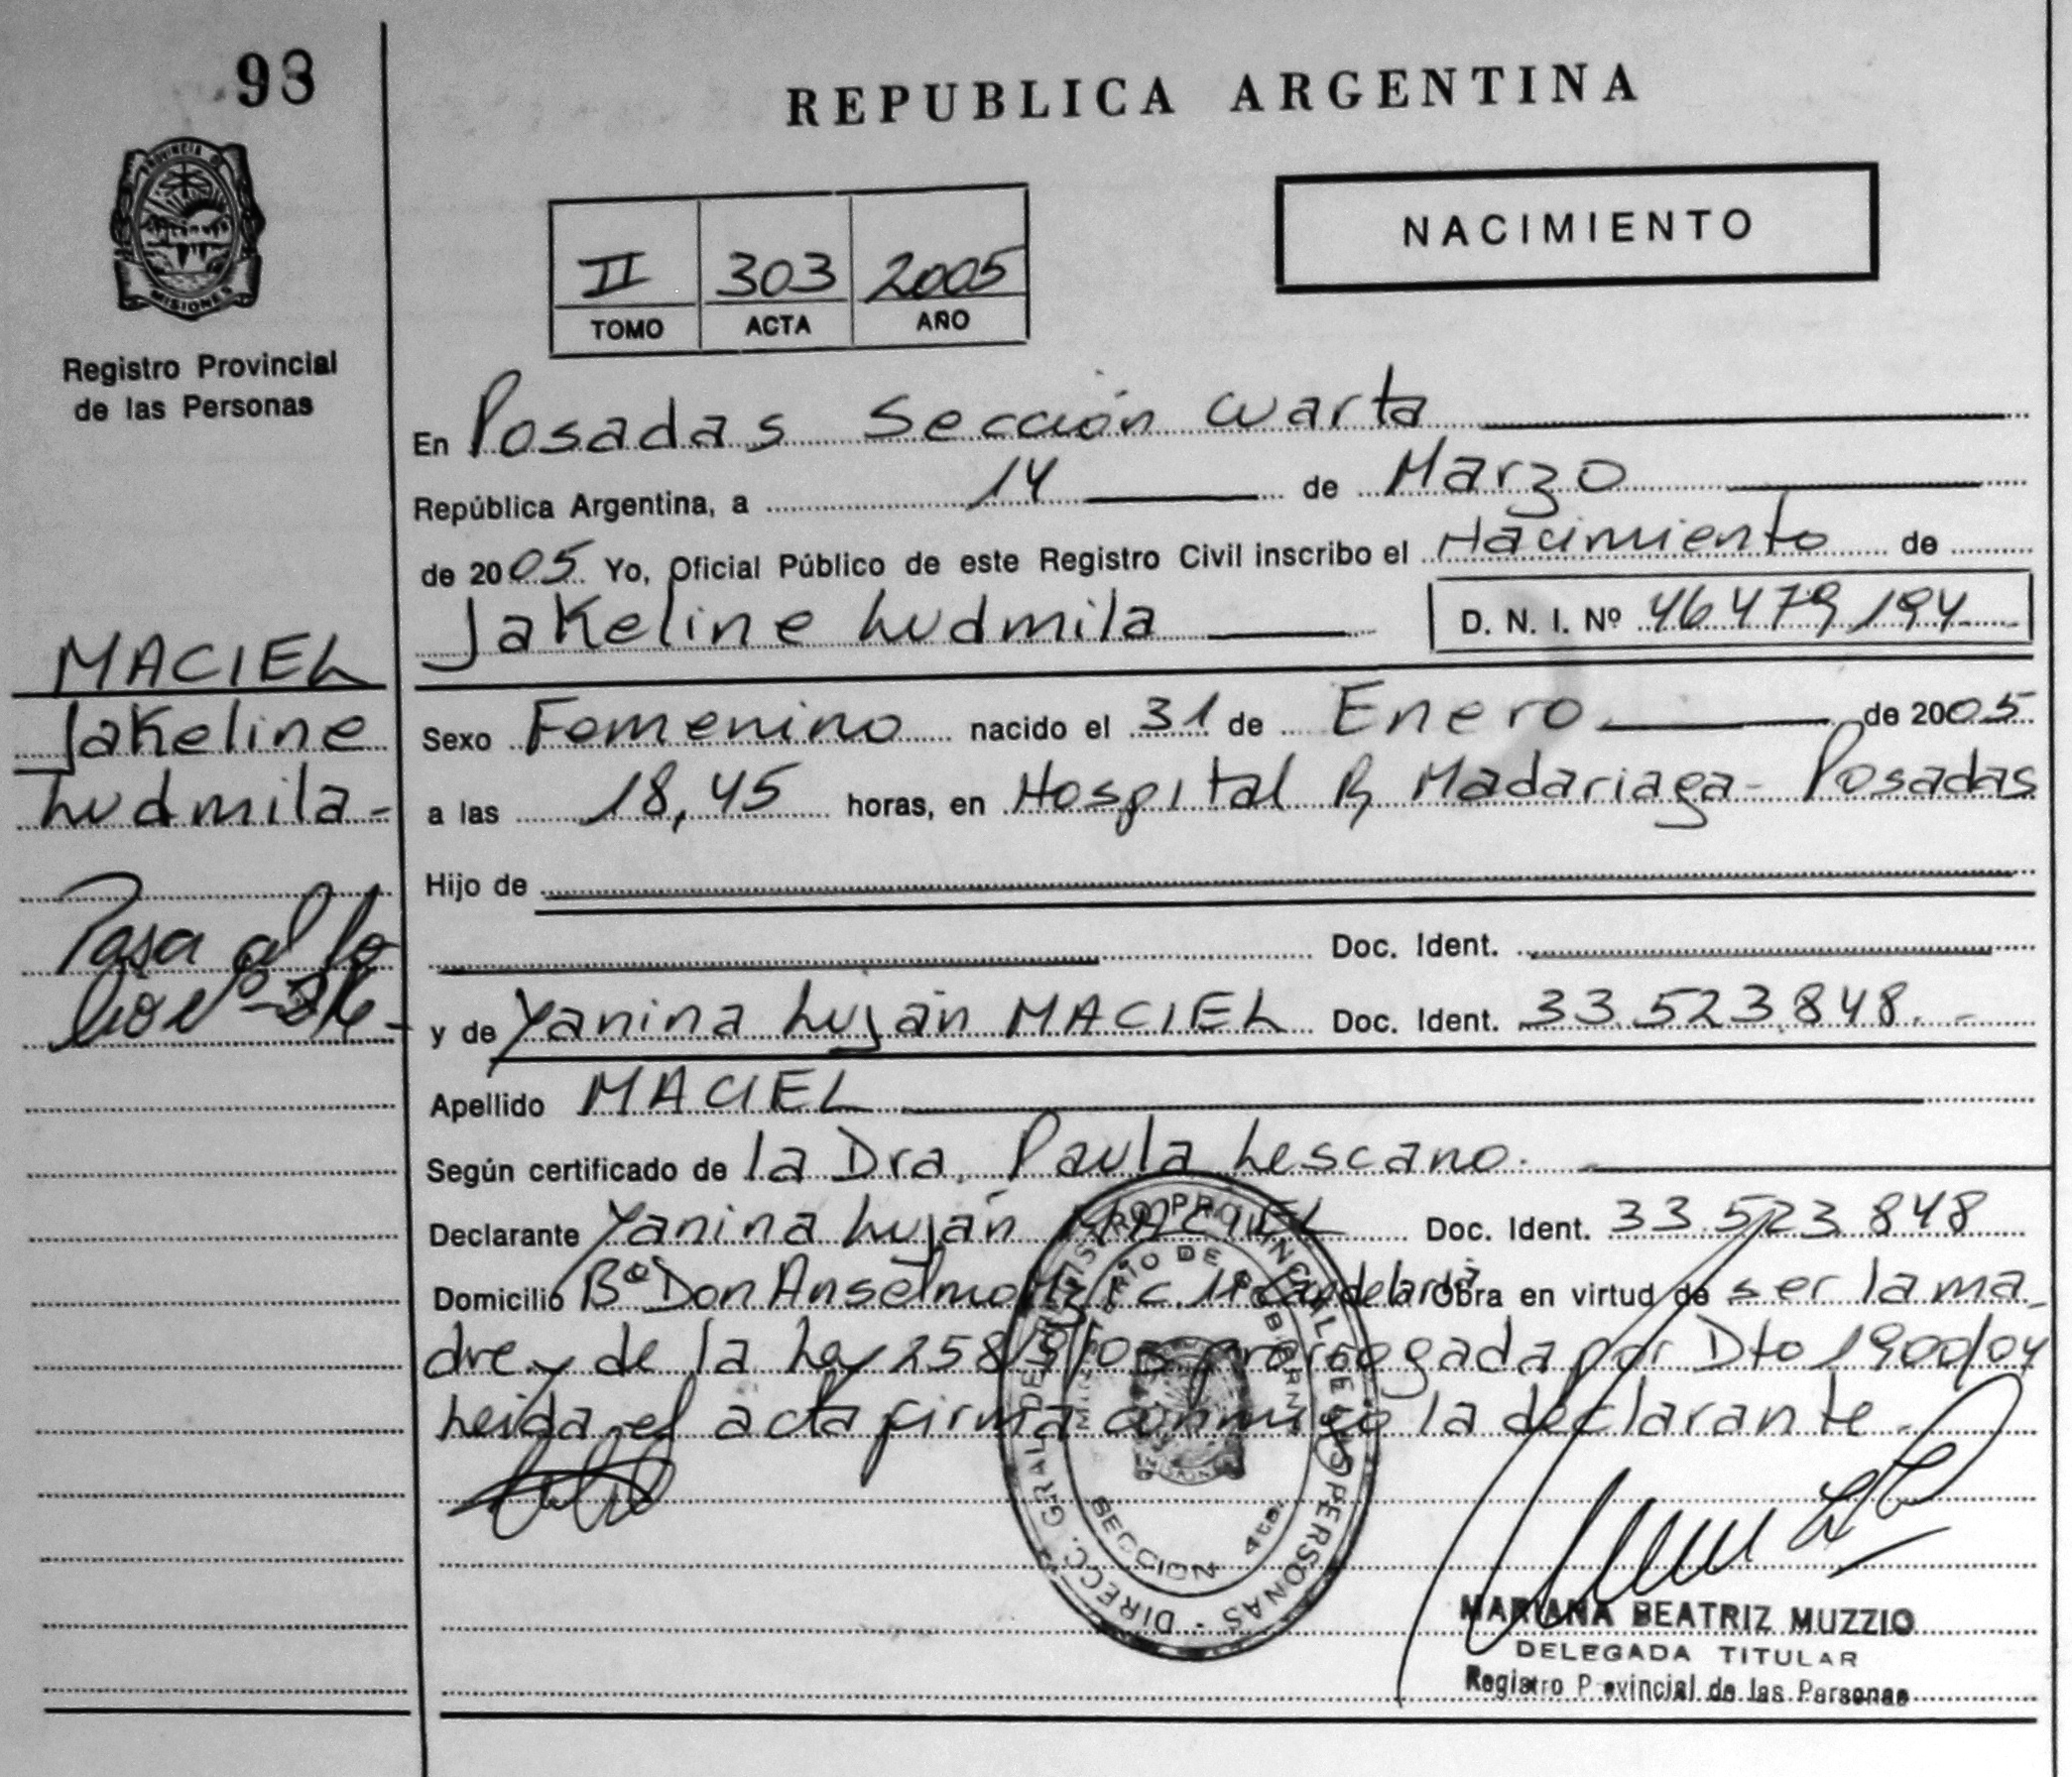 93
REPUBLICA ARGENTINA
PROVINCIA DE
MISIONES
Registro Provincial
de las Personas
NACIMIENTO
II 303 2005
TOMO ACTA AÑO
En Posadas Sección Cuarta
República Argentina, a 14 de Marzo
de 2005 Yo, Oficial Público de este Registro Civil inscribo el Nacimiento de
Jakeline Ludmila D. N. I. Nº 46.479.194
MACIEL
Jakeline
Ludmila-
Sexo Femenino nacido el 31 de Enero de 2005
a las 18,45 horas, en Hospital R. Madariaga - Posadas
Hijo de
Doc. Ident.
Pasa al fo
y de Yanina Luján MACIEL Doc. Ident. 33.523.848.-
Apellido MACIEL
Según certificado de la Dra. Paula Lescano.
Declarante Yanina Luján MACIEL Doc. Ident. 33.523.848
Domicilio Bº Don Anselmo Candelaria Obra en virtud de ser la ma
dre y de la Ley 25819/03 prorrogada por Dto 1900/04
Leida el acta firma conmigo la declarante.
DIRECC. GRAL DE REGISTRO PROVINCIAL DE LAS PERSONAS
MINISTERIO DE GOBIERNO
MISIONES
SECCION 4ta.
MARIANA BEATRIZ MUZZIO
DELEGADA TITULAR
Registro Provincial de las Personas